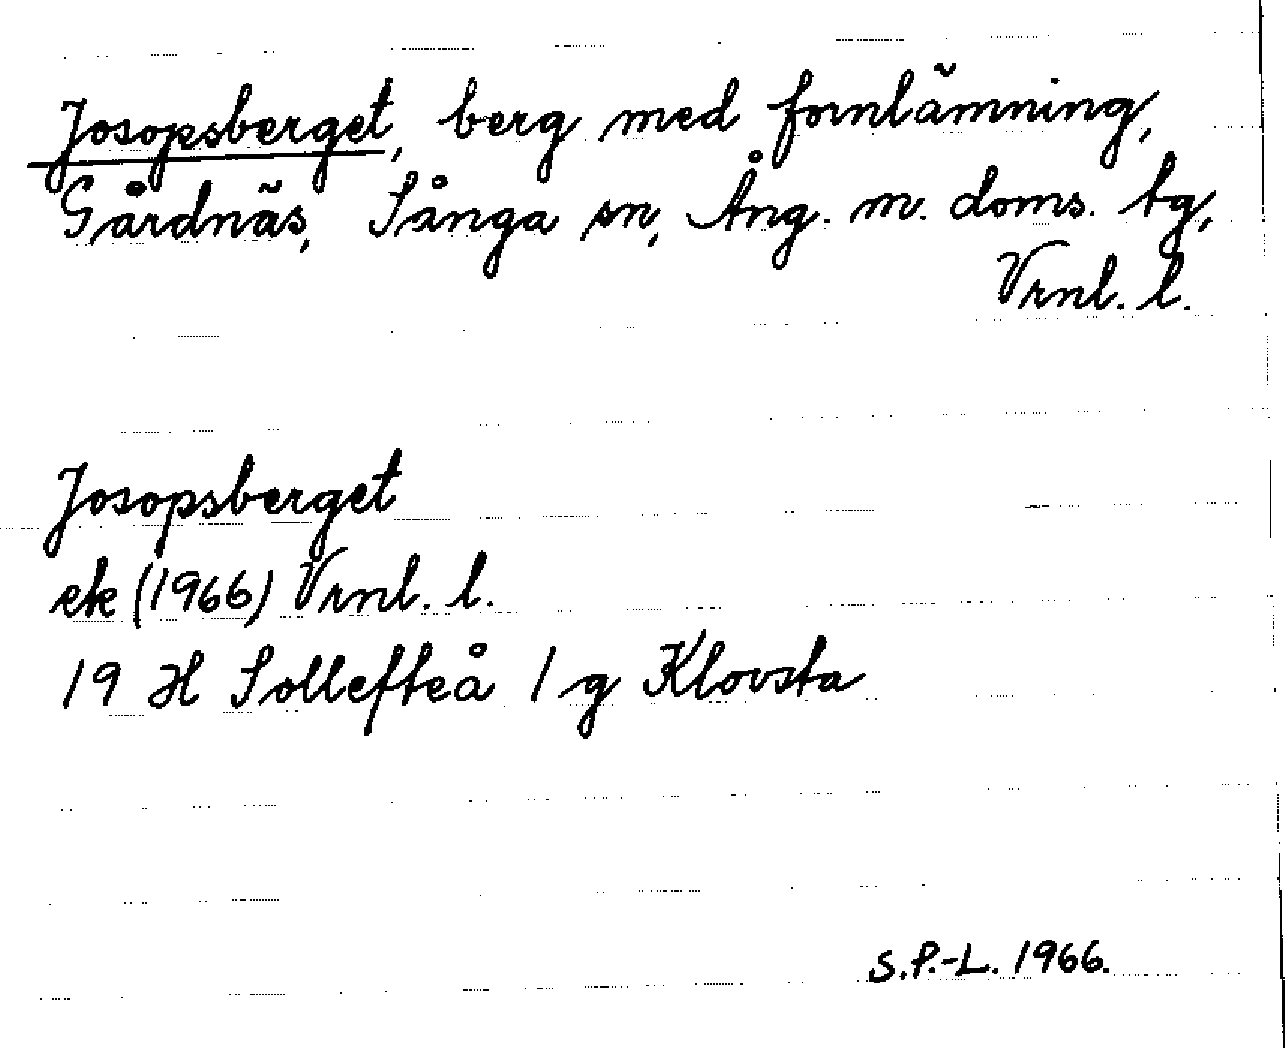 Josopsberget, berg med fornlämning,
Gårdnäs, Sånga sn, Ång. m. doms. tg,
Vrnl. l.
Josopsberget
ek (1966) Vrnl. l.
19 H Sollefteå 1 g Klovsta
S.P.-L. 1966.